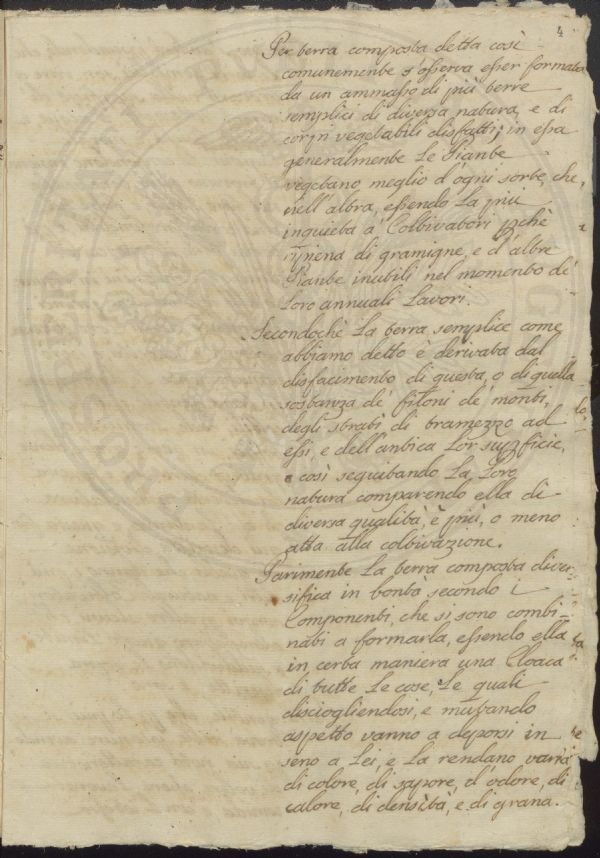 4
Per terra composta detta così
comunemente s'osserva esser formata
da un ammasso di più terre
semplici di diversa natura, e di
corpi vegetabili disfatti; in essa
generalmente Le Piante
vegetano meglio d'ogni sorte, che
nell'altra, essendo La più
inquieta a Coltivatori pchè
ripiena di gramigne, e d'altre
Piante inutili nel momento de
Loro annuali Lavori.
Secondochè La terra semplice come
abbiamo detto è derivata dal
disfacimento di questa, o di quella
sostanza de filoni de monti,
degli strati di tramezzo ad
essi, e dell'antica Lor supficie,
e così seguitando La Loro
natura comparendo ella di
diversa qualità, è più, o meno
atta alla coltivazione.
Parimente La terra composta diver-
sifica in bontà secondo i
Componenti, che si sono combi-
nati a formarla, essendo ella
in certa maniera una Cloaca
di tutte Le cose, Le quali
disciogliendosi, e mutando
aspetto vanno a deporsi in
seno a Lei, e La rendano varia
di colore, di sapore, d'odore, di
calore, di densità, e di grana.